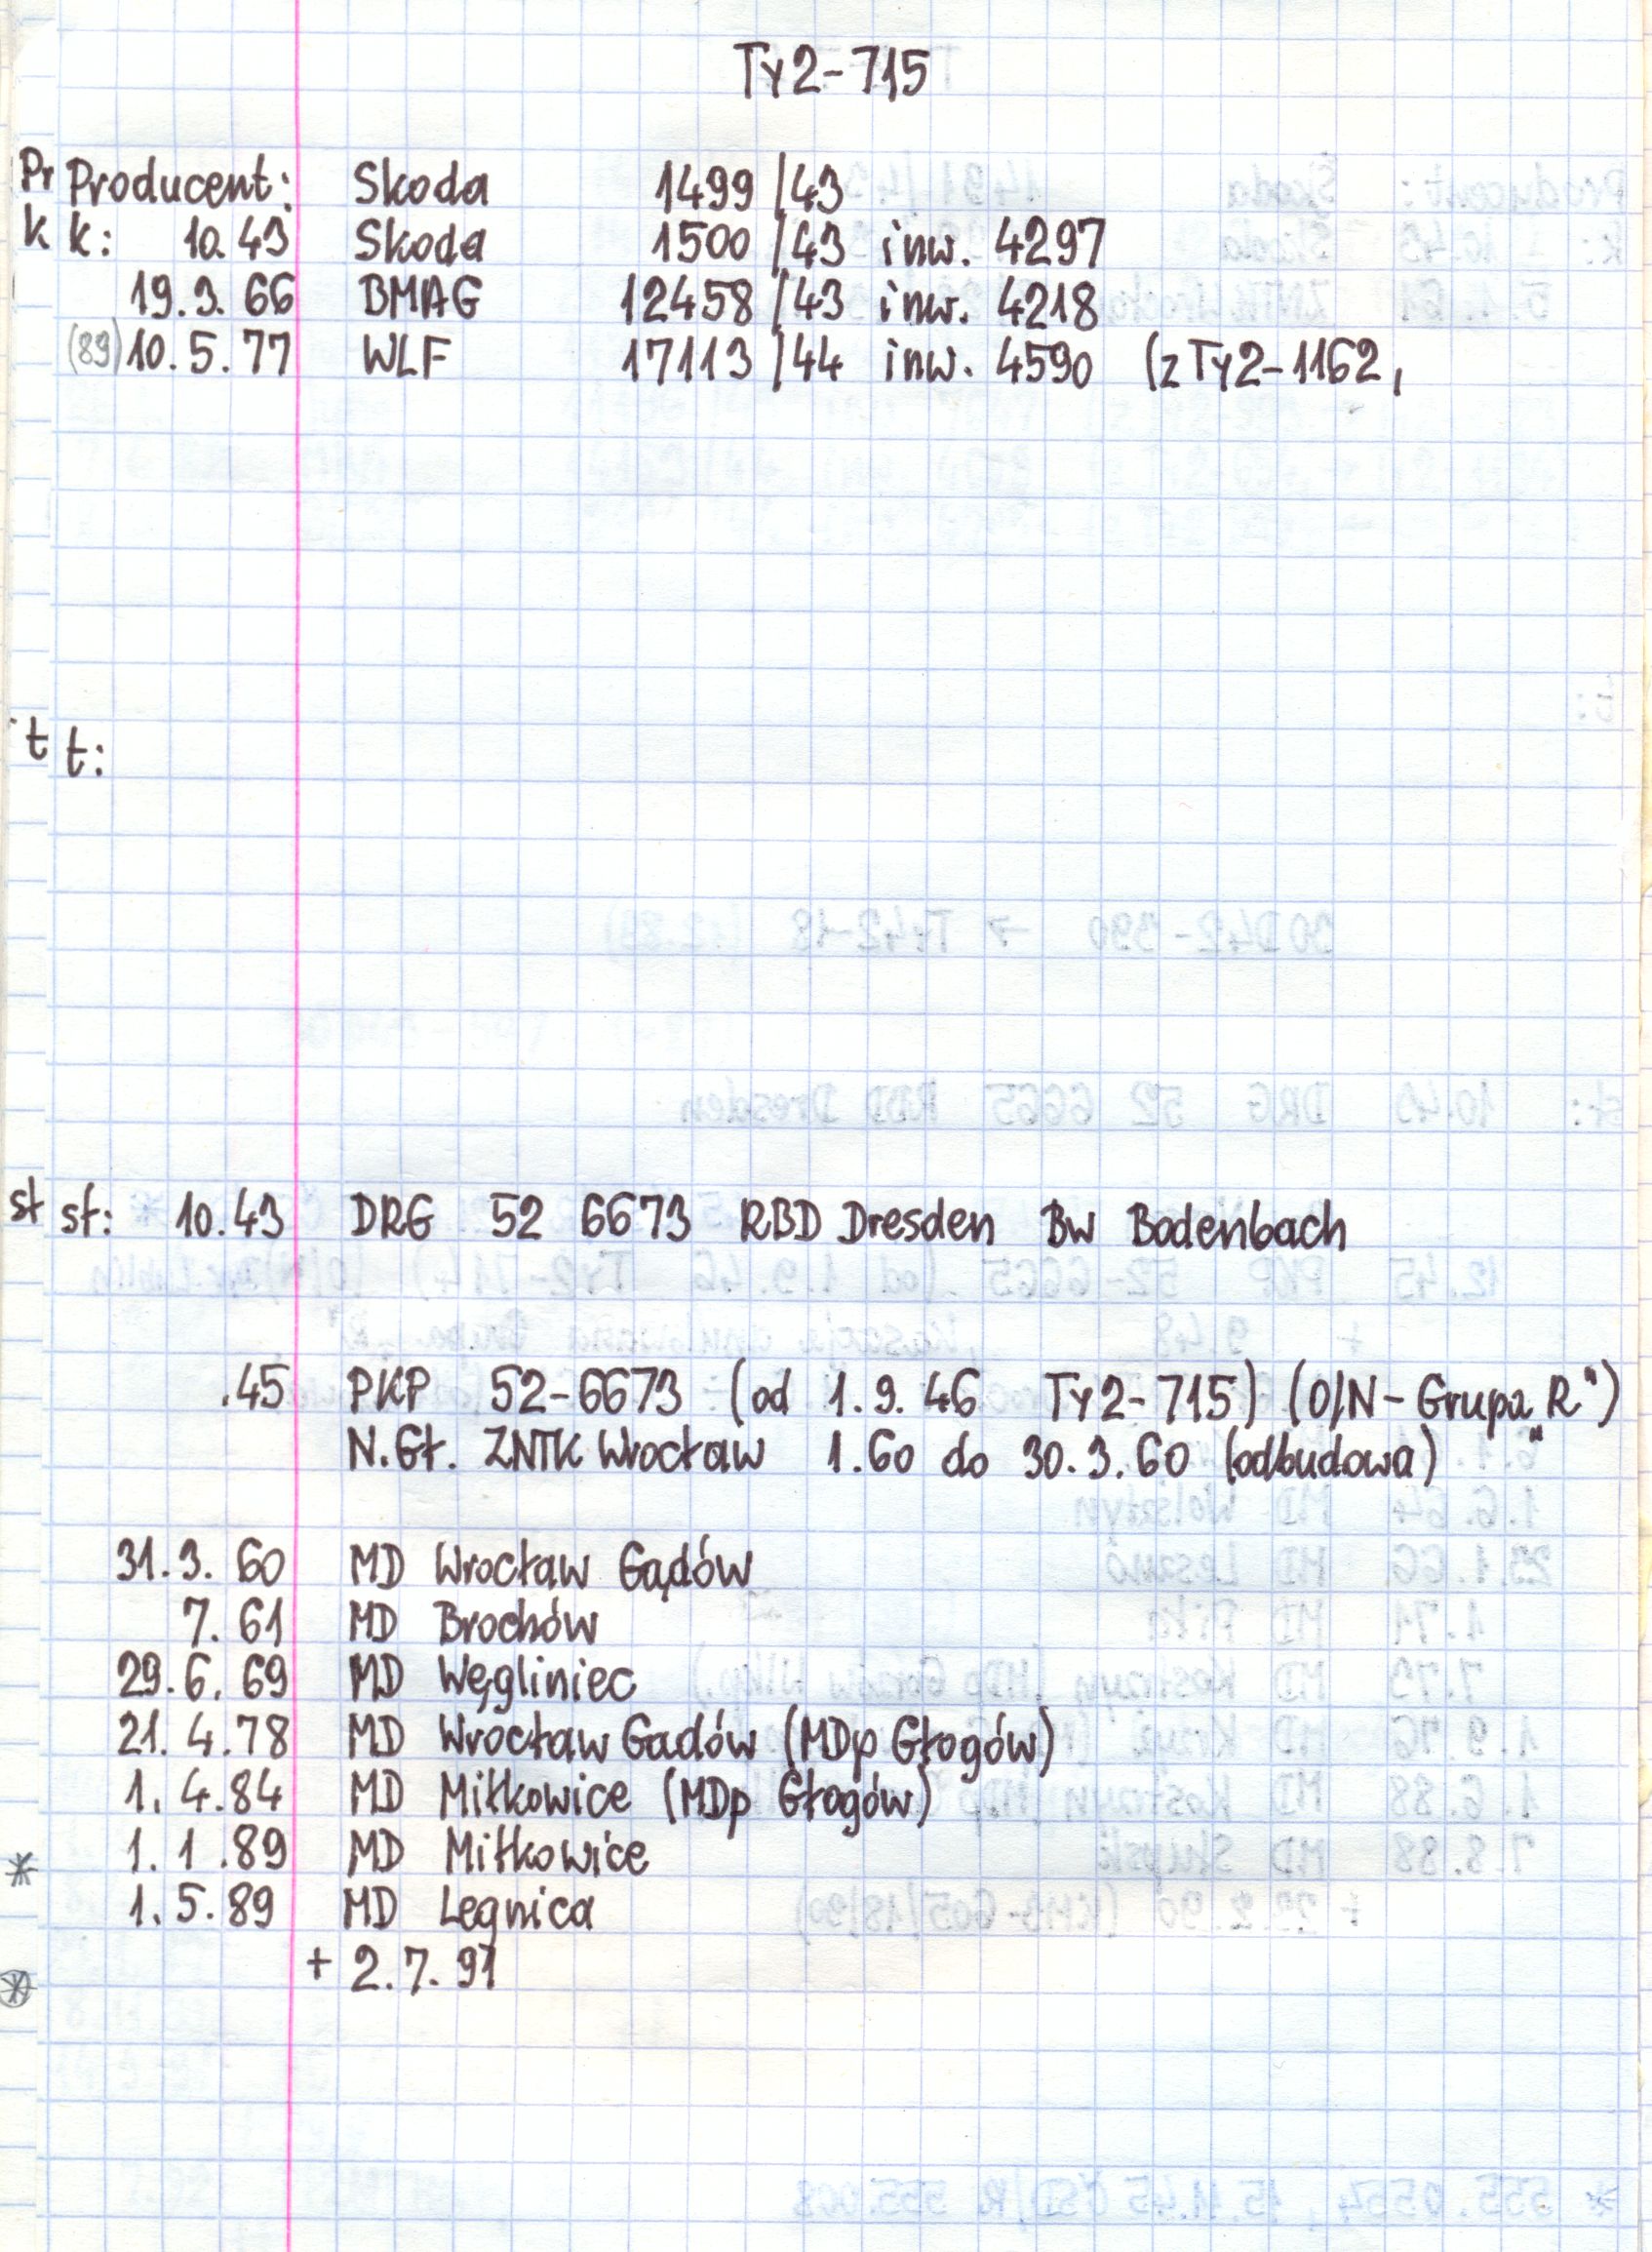 Ty2-715
Pr Producent: Skoda 1499/43
k k: 10.43 Skoda 1500/43 inw. 4297
19.3.66 BMAG 12458/43 inw. 4218
(89) 10.5.77 WLF 17113/44 inw. 4590 (z Ty2-1162,
t t:
st st: 10.43 DRG 52 6673 RBD Dresden Bw Bodenbach
.45 PKP 52-6673 (od 1.9.46 Ty2-715) (O/N-Grupa „R")
N.Gł. ZNTK Wrocław 1.60 do 30.3.60 (odbudowa)
31.3.60 MD Wrocław Gądów
7.61 MD Brochów
29.6.69 MD Węgliniec
21.4.78 MD Wrocław Gadów (MDp Głogów)
1.4.84 MD Miłkowice (MDp Głogów)
* 1.1.89 MD Miłkowice
1.5.89 MD Legnica
+ 2.7.91